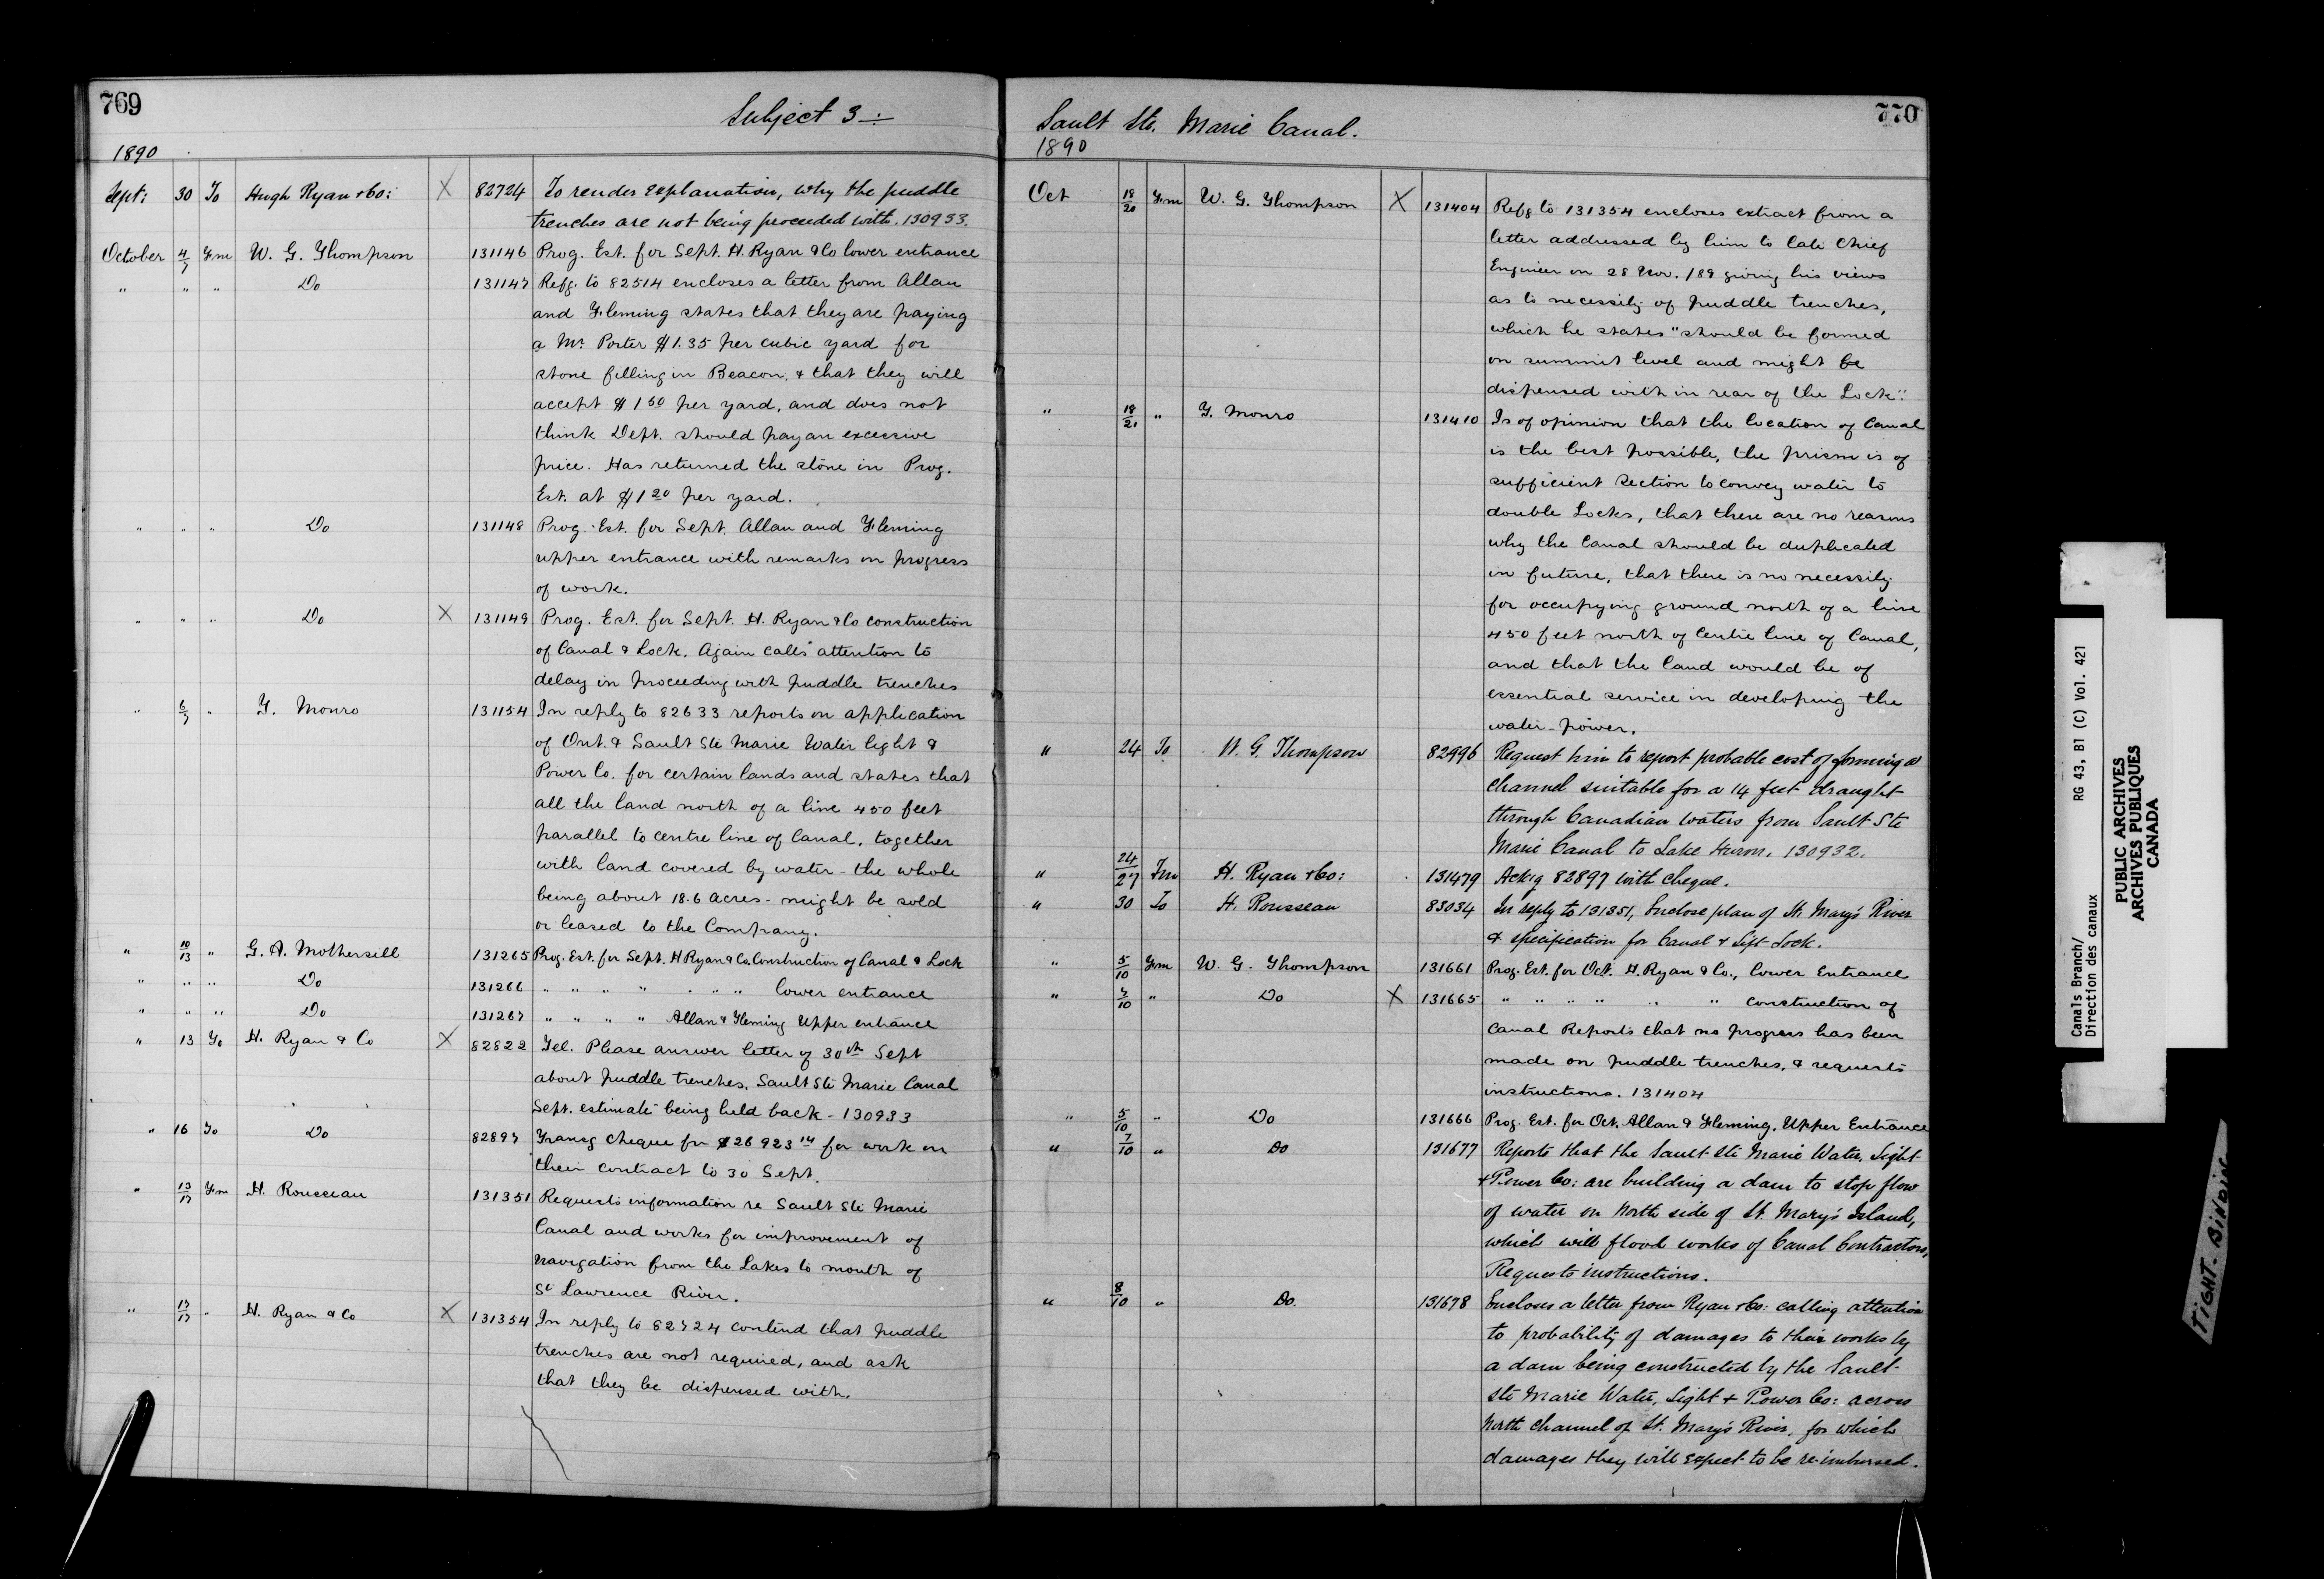 769
Subject 3 :-
1890
Sept: 30 To Hugh Ryan & Co: X 82724 To render explanation, why the puddle
trenches are not being proceeded with. 130933.
October 4/7 Frm W. G. Thompson 131146 Prog. Est. for Sept. H. Ryan & Co lower entrance
" " " Do 131147 Refg. to 82514 encloses a letter from Allan
and Fleming states that they are paying
a Mr. Porter $1.35 per cubic yard for
stone filling in Beacon, & that they will
accept $1 50 per yard, and does not
think Dept. should pay an excessive
price. Has returned the stone in Prog.
Est. at $1 20 per yard.
" " " Do 131148 Prog. Est. for Sept. Allan and Fleming
upper entrance with remarks on progress
of work.
" " " Do X 131149 Prog. Est. for Sept. H. Ryan & Co construction
of Canal & Lock. Again calls attention to
delay in proceeding with puddle trenches
" 6/7 " T. Monro 131154 In reply to 82633 reports on application
of Ont. & Sault Ste Marie Water light &
Power Co. for certain lands and states that
all the land north of a line 450 feet
parallel to centre line of Canal, together
with land covered by water - the whole
being about 18.6 acres - might be sold
or leased to the Company.
" 10/13 " G. A. Mothersill 131265 Prog. Est. for Sept. H Ryan & Co. Construction of Canal & Lock
" " " Do 131266 " " " " " " " lower entrance
" " " Do 131267 " " " " Allan & Fleming Upper entrance
" 13 To H. Ryan & Co X 82822 Tel. Please answer letter of 30th Sept
about puddle trenches, Sault Ste Marie Canal
Sept. estimate being held back - 130933
" 16 To Do 82897 Transg cheque for $26 923 14 for work on
their contract to 30 Sept.
" 13/17 Frm H. Rousseau 131351 Requests information re Sault Ste Marie
Canal and works for improvement of
navigation from the Lakes to mouth of
St Lawrence River.
" 17/17 " H. Ryan & Co X 131354 In reply to 82724 contend that puddle
trenches are not required, and ask
that they be dispensed with.
770
Sault Ste. Marie Canal.
1890
Oct 18/20 Frm W. G. Thompson X 131404 Refg to 131354 encloses extract from a
letter addressed by him to late Chief
Engineer on 28 Nov. /89 giving his views
as to necessity of puddle trenches,
which he states "should be formed
on summit level and might be
dispensed with in rear of the Lock".
" 18/21 " T. Monro 131410 Is of opinion that the location of Canal
is the best possible, the prism is of
sufficient section to convey water to
double Locks, that there are no reasons
why the Canal should be duplicated
in future, that there is no necessity
for occupying ground north of a line
450 feet north of Centre line of Canal,
and that the land would be of
essential service in developing the
water-power.
" 24 To W. G. Thompson 82996 Request him to report probable cost of forming a
channel suitable for a 14 feet draught
through Canadian waters from Sault Ste
Marie Canal to Lake Huron. 130932.
" 24/27 Frm H. Ryan & Co: 131479 Ack'g 82897 with cheque.
" 30 To H. Rousseau 83034 In reply to 131351, Enclose plan of St. Mary's River
& specification for Canal & Lift-Lock.
" 5/10 Frm W. G. Thompson 131661 Prog. Est. for Oct. H. Ryan & Co., lower Entrance
" 7/10 " Do X 131665 " " " " " " construction of
Canal Reports that no progress has been
made on puddle trenches, & requests
instructions. 131404
" 5/10 " Do 131666 Prog. Est. for Oct. Allan & Fleming. Upper Entrance
" 7/10 " Do 131677 Reports that the Sault Ste Marie Water, Light
& Power Co: are building a dam to stop flow
of water on North side of St. Mary's Island,
which will flood works of Canal Contractors,
Requests instructions.
" 8/10 " Do. 131678 Encloses a letter from Ryan & Co: calling attention
to probability of damages to their works by
a dam being constructed by the Sault
Ste Marie Water, Light & Power Co: across
North Channel of St. Mary's River, for which
damages they will expect to be re-imbursed.
Canals Branch/
Direction des canaux
RG 43, B1 (C) Vol. 421
PUBLIC ARCHIVES
ARCHIVES PUBLIQUES
CANADA
TIGHT-BINDING